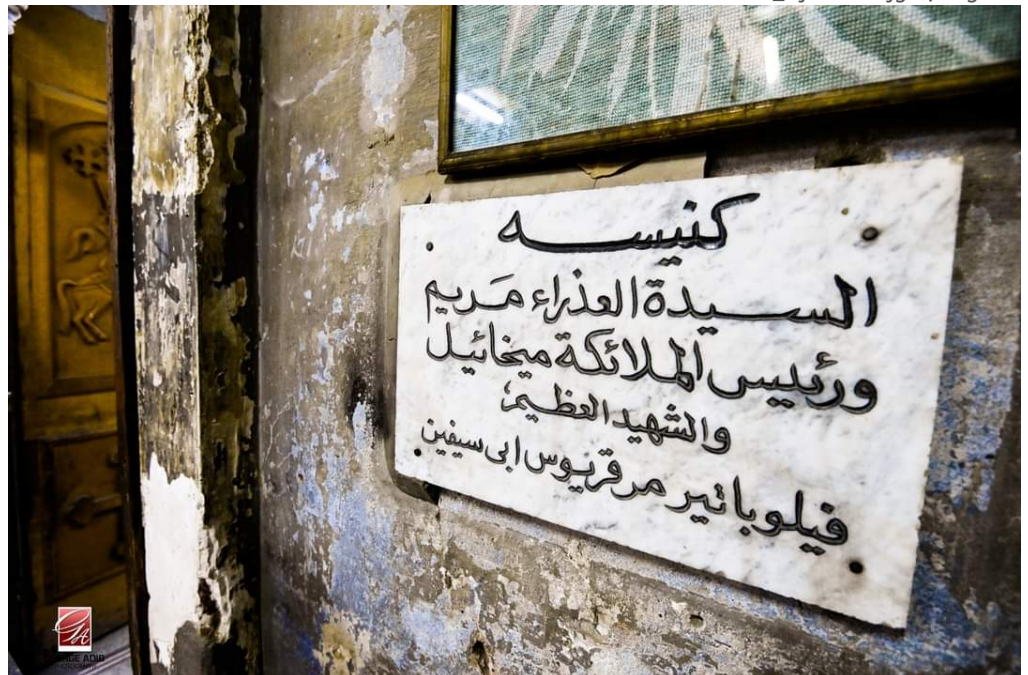 كنيسه
السيدة العذراء مَريم
ورئيس الملائكة ميخائيل
والشهيد العظيم؛
فيلوباتير مرقريوس ابى سيفين